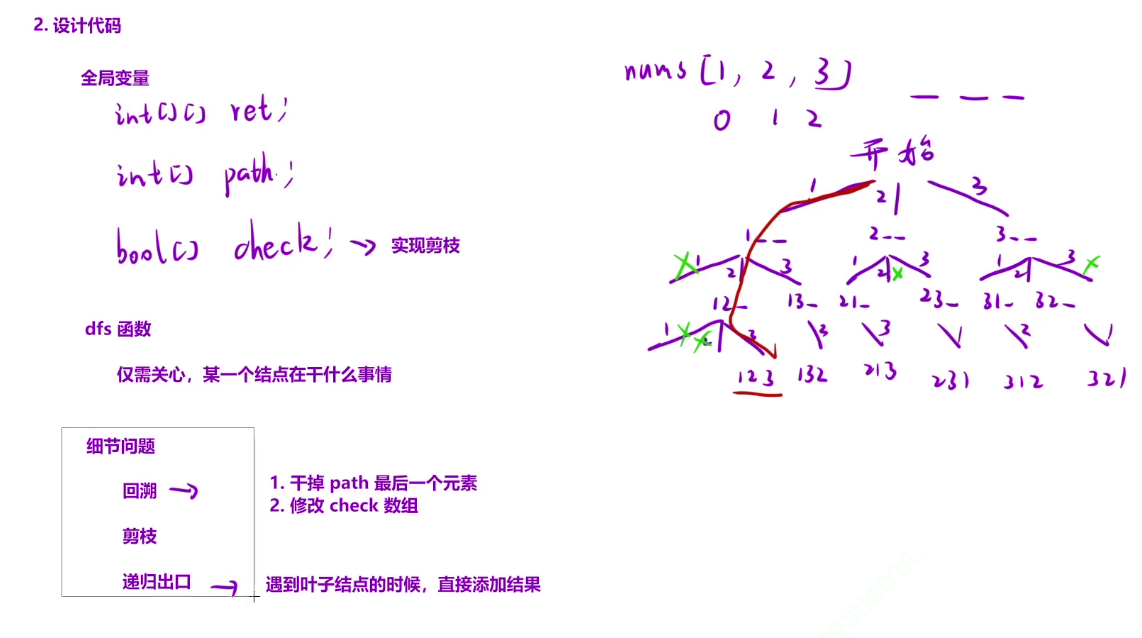 2. 设计代码
全局变量
int[][] ret;
int[] path;
bool[] check; → 实现剪枝
dfs 函数
仅需关心，某一个结点在干什么事情
细节问题
回溯 →
1. 干掉 path 最后一个元素
2. 修改 check 数组
剪枝
递归出口 → 遇到叶子结点的时候，直接添加结果
nums [1, 2, 3]
0 1 2
_ _ _
开始
1 2 3
1_ _ 2_ _ 3_ _
X 1 2 3 1 2 X 3 1 2 3 X
12_ 13_ 21_ 23_ 31_ 32_
1 X X 2 3 3 3 1 2 1
123 132 213 231 312 321